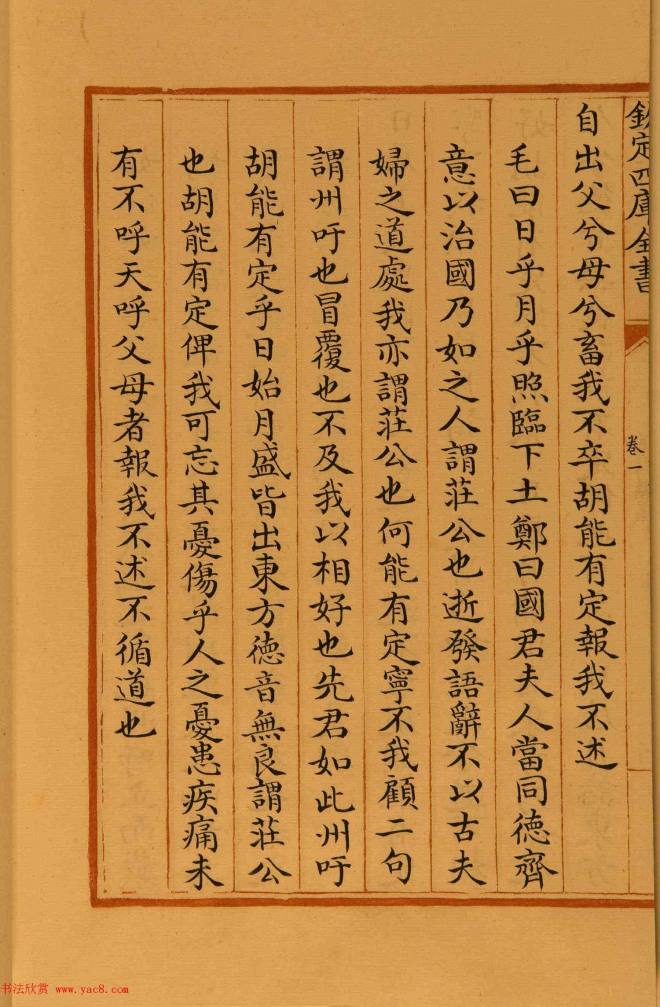 欽定四庫全書
卷一
自出父兮母兮畜我不卒胡能有定報我不述
毛曰日乎月乎照臨下土鄭曰國君夫人當同德齊
意以治國乃如之人謂莊公也逝發語辭不以古夫
婦之道處我亦謂莊公也何能有定寧不我顧二句
謂州吁也冒覆也不及我以相好也先君如此州吁
胡能有定乎日始月盛皆出東方德音無良謂莊公
也胡能有定俾我可忘其憂傷乎人之憂患疾痛未
有不呼天呼父母者報我不述不循道也
书法欣赏 www.yac8.com